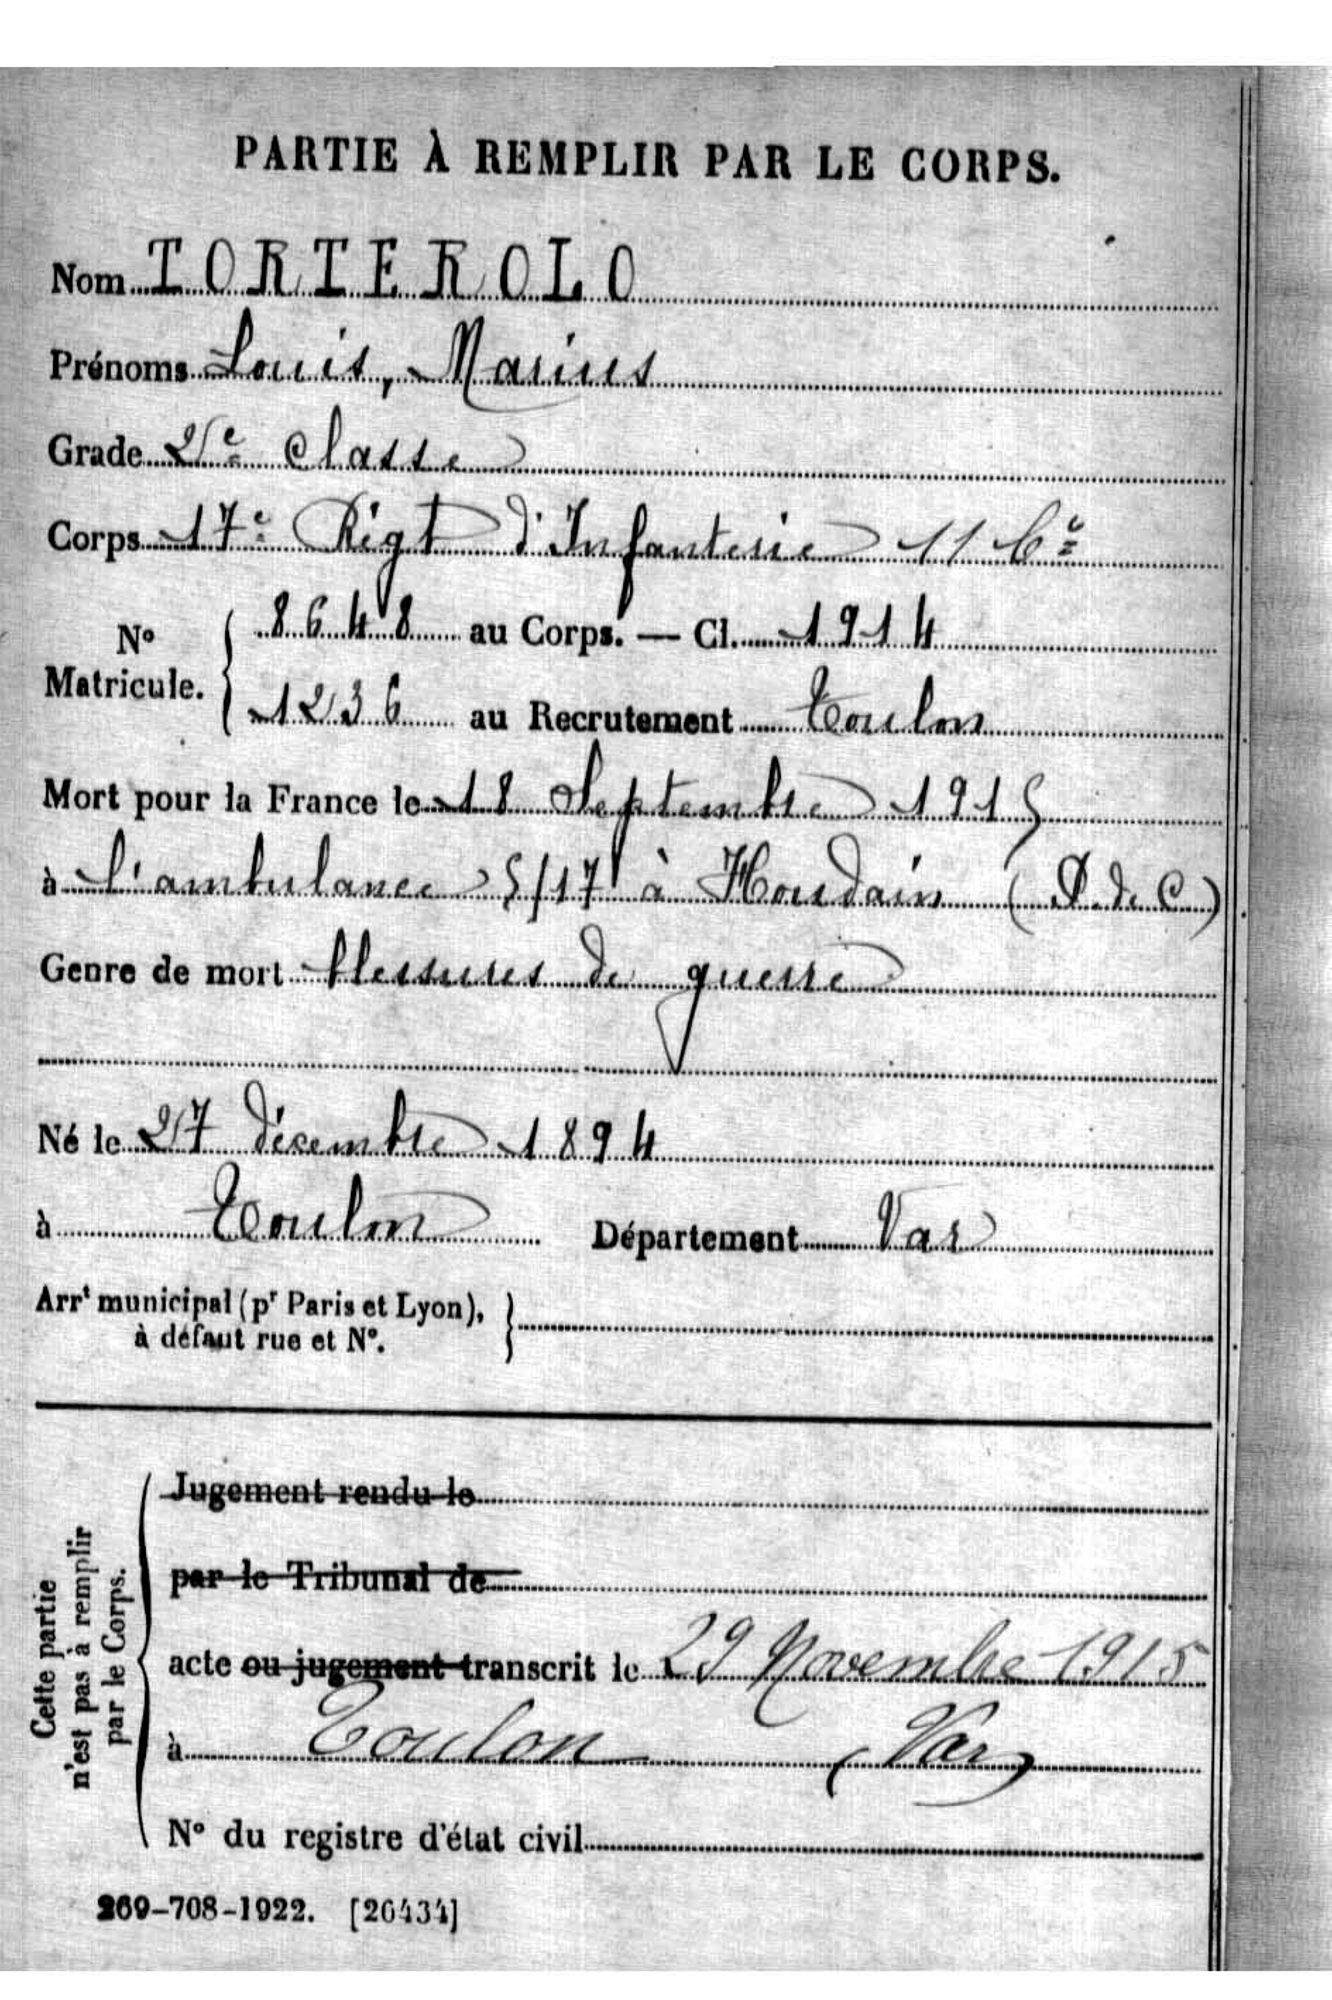 PARTIE À REMPLIR PAR LE CORPS.
Nom TORTEROLO
Prénoms Louis, Marius
Grade 2e classe
Corps 17e Régt d'Infanterie 11 Cie
No Matricule. { 8648 au Corps. — Cl. 1914
1236 au Recrutement Toulon
Mort pour la France le 18 Septembre 1915
à l'ambulance 5/17 à Houdain (P. de C)
Genre de mort blessures de guerre
Né le 27 décembre 1894
à Toulon Département Var
Arrt municipal (pr Paris et Lyon),
à défaut rue et No.
Cette partie
n'est pas à remplir
par le Corps.
Jugement rendu le
par le Tribunal de
acte ou jugement transcrit le 29 Novembre 1915
à Toulon (Var)
No du registre d'état civil
269-708-1922. [26434]